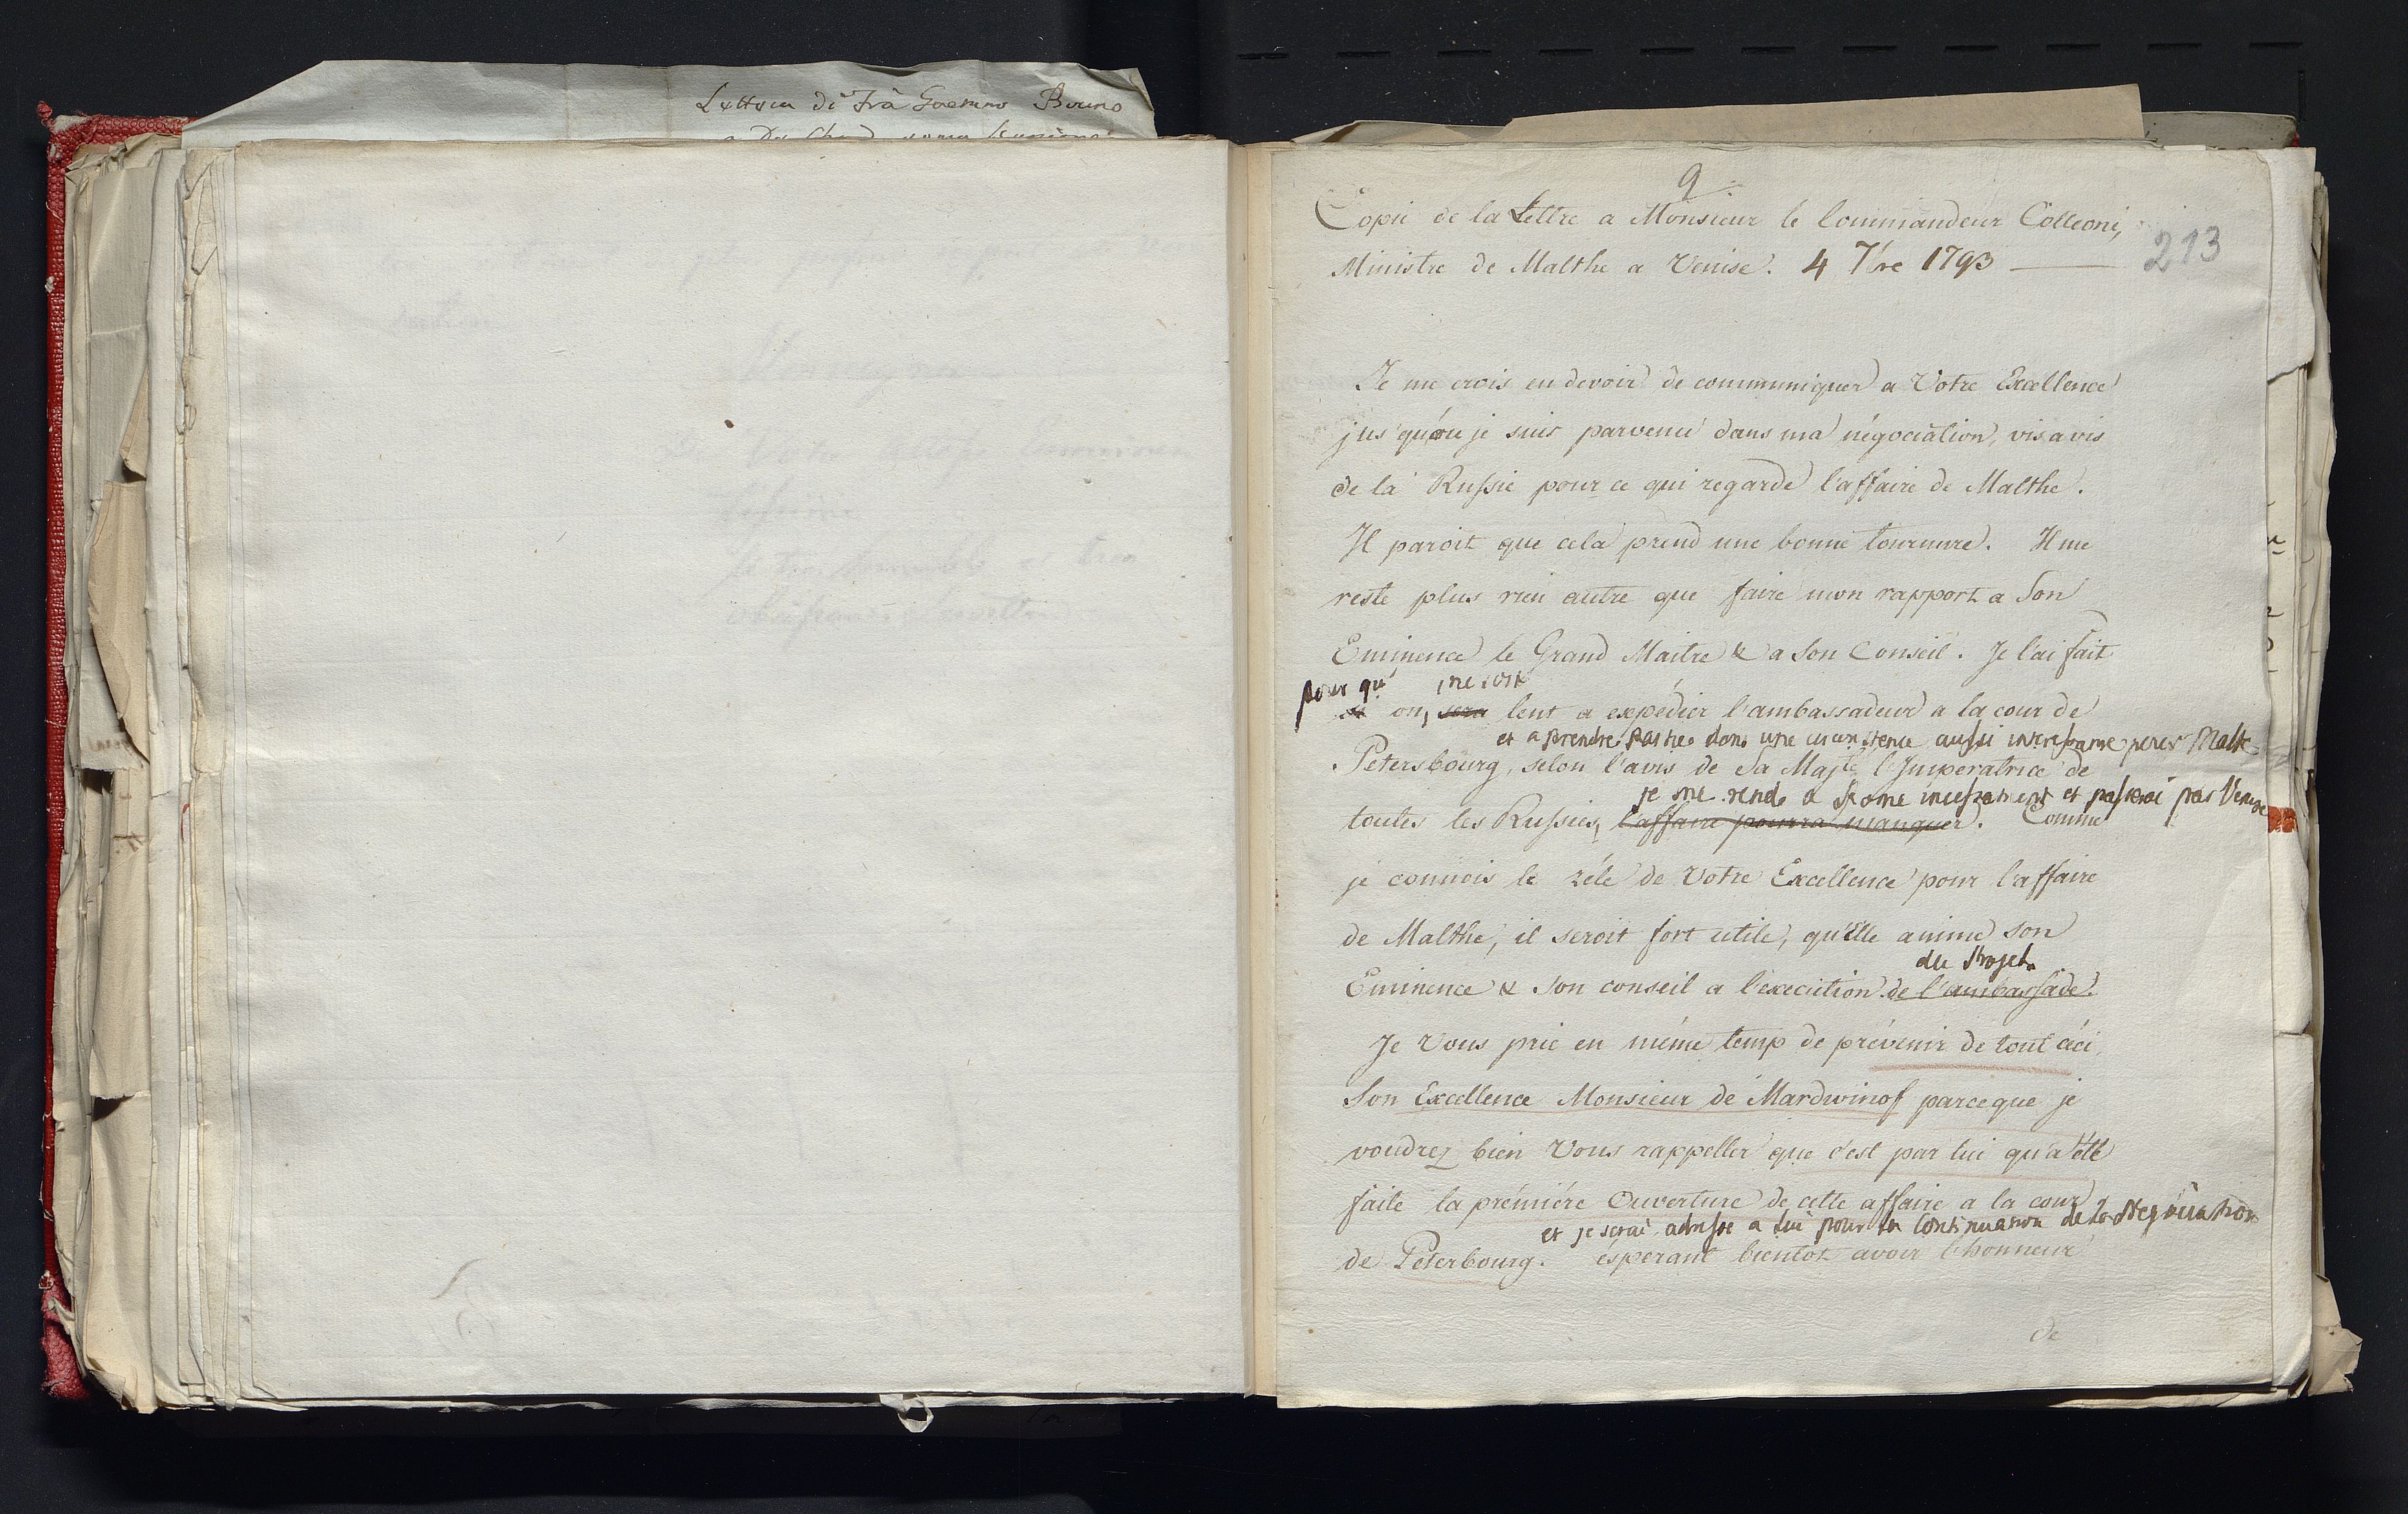 Lettera di Frà Gaetano Bruno
9.
Copie de la Lettre a Monsieur le Commandeur Colleoni,
213
Ministre de Malthe a Venise. 4 7bre 1793
Je me crois en devoir de communiquer a Votre Excellence
jus'qu'ou je suis parvenu dans ma négociation, vis a vis
de la Russie pour ce qui regarde l'affaire de Malthe.
Il paroit que cela prend une bonne tournure. Il me
reste plus rien autre que faire mon rapport a Son
Eminence le Grand Maitre & a Son Conseil. Je l'ai fait
pour qu' ne soit
on, sera lent a expédier l'ambassadeur a la cour de
et a prendre Partie dans une circonstence aussi interessante pour Malte
Petersbourg, selon l'avis de Sa Majté l'Imperatrice de
je me rends a Rome incessament et passerai par Venise
toutes les Russies, l'affaire pourra manquer. Comme
je connois le zéle de Votre Excellence pour l'affaire
de Malthe, il seroit fort utile, qu'Elle anime son
du Projet
Eminence & Son conseil a l'execution de l'ambassade.
Je Vous prie en même temp de prévenir de tout céci
Son Excellence Monsieur de Mardwinof parceque je
voudrez bien Vous rappeller que c'est par lui qu'a été
faite la prémiére Ouverture de cette affaire a la cour
et je serai adresse a lui pour la Continuation de la Negociation
de Peterbourg. ésperant bientot avoir l'honneur
de